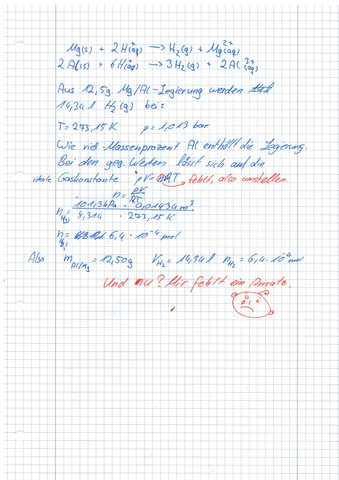 Mg(s) + 2H⁺(aq) → H₂(g) + Mg²⁺(aq)
2Al(s) + 6H⁺(aq) → 3H₂(g) + 2Al³⁺(aq)
Aus 12,5g Mg/Al-Legierung werden
14,34 l H₂(g) bei:
T=273,15K p=1,013 bar
Wie viel Massenprozent Al enthält die Legierung
Bei den geg. Werten lässt sich auf die
ideale Gaskonstante pV=nRT fehlt, also umstellen.
n= pV/RT
n(H₂)= 101,3kPa · 0,01434m³ / 8,314 · 273,15K
n(H₂)= 6,4 · 10⁻⁴ mol
Also m Al/Mg = 12,50g V H₂ = 14,34l n H₂ = 6,4·10⁻⁴ mol
Und nu? Mir fehlt ein Ansatz.